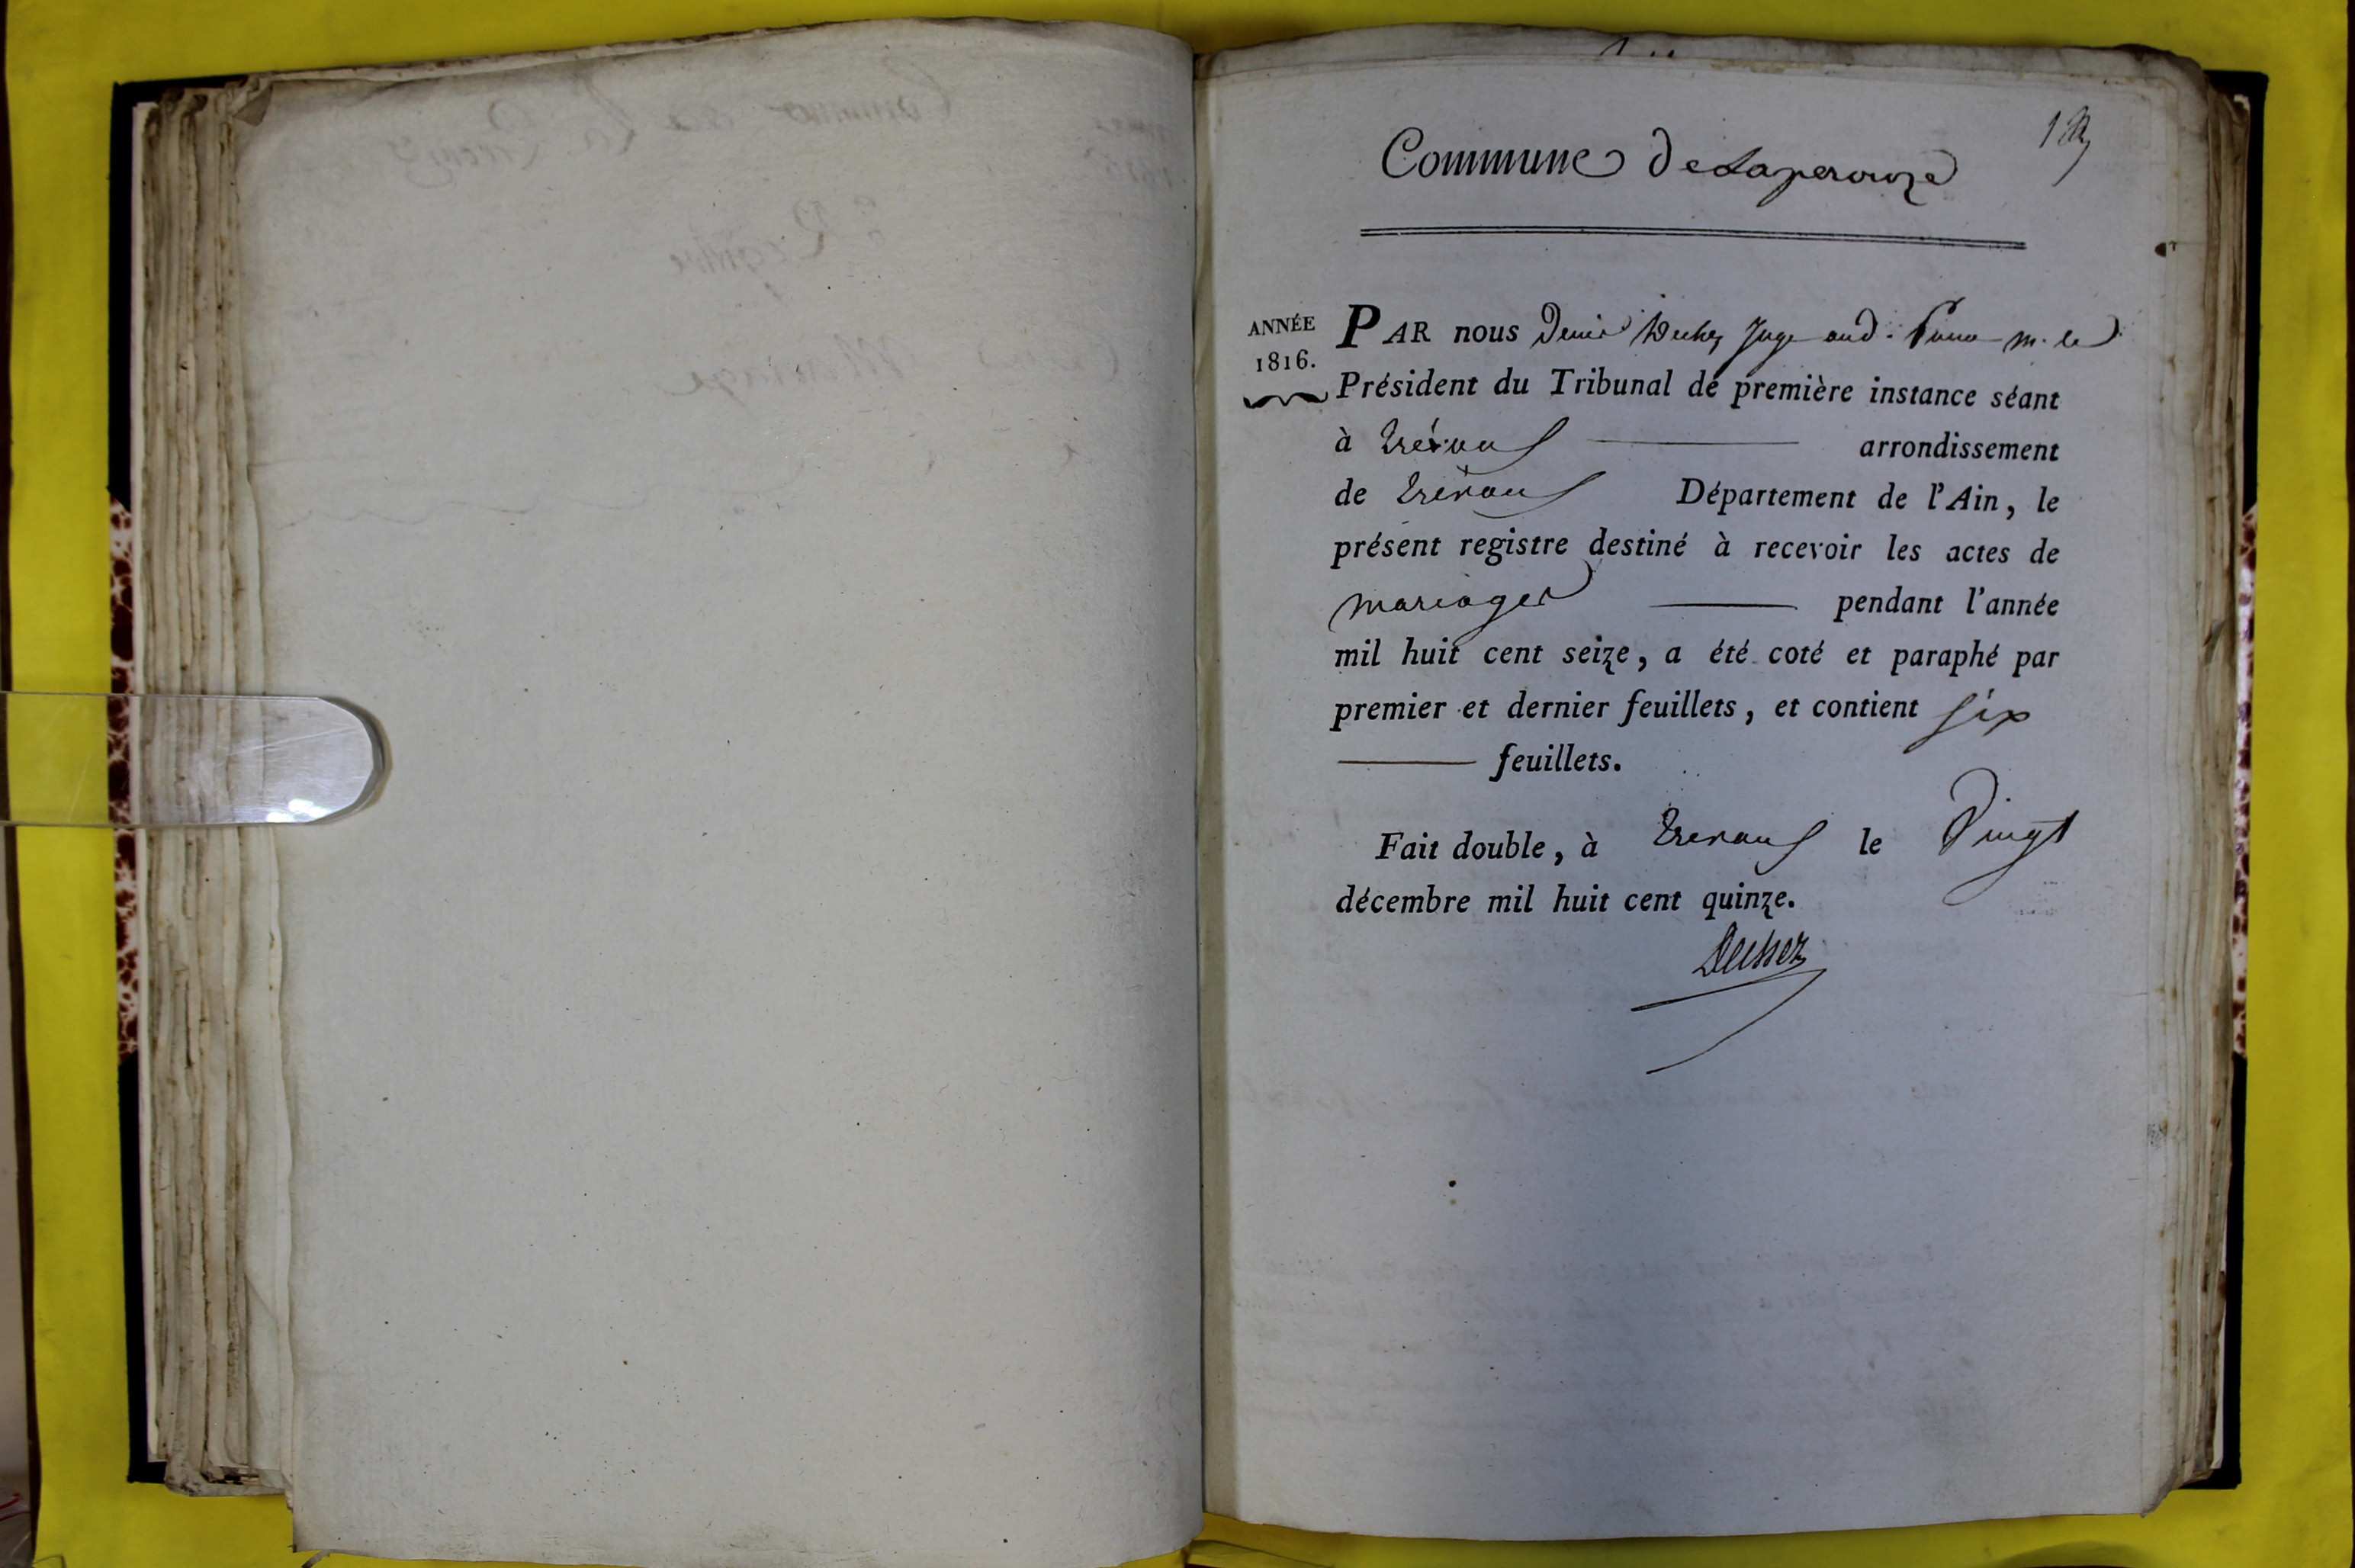 Commune de Laperouze
ANNÉE
1816.
PAR nous Denis Juge aud. pour m. le
Président du Tribunal de première instance séant
à trévoux arrondissement
de trévoux Département de l'Ain, le
présent registre destiné à recevoir les actes de
mariages pendant l'année
mil huit cent seize, a été coté et paraphé par
premier et dernier feuillets, et contient six
feuillets.
Fait double, à trevoux le Vingt
décembre mil huit cent quinze.